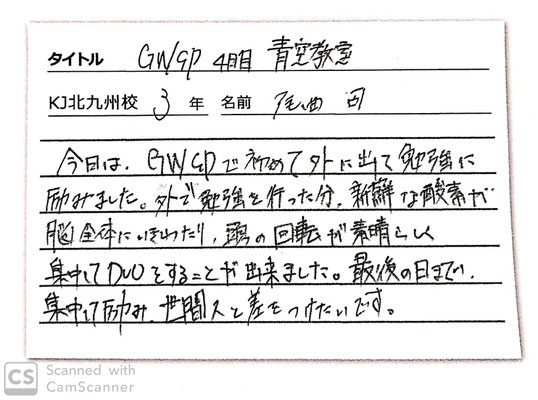 タイトル GW合P 4日目 青空教室
KJ北九州校 3 年 名前
今日は、GW合Pで初めて外に出て勉強に
励みました。外で勉強を行った分、新鮮な酸素が
脳全体にいきわたり、頭の回転が素晴らしく
集中してDUOをすることが出来ました。最後の日まで、
集中して励み、世間人と差をつけたいです。
CS Scanned with
CamScanner